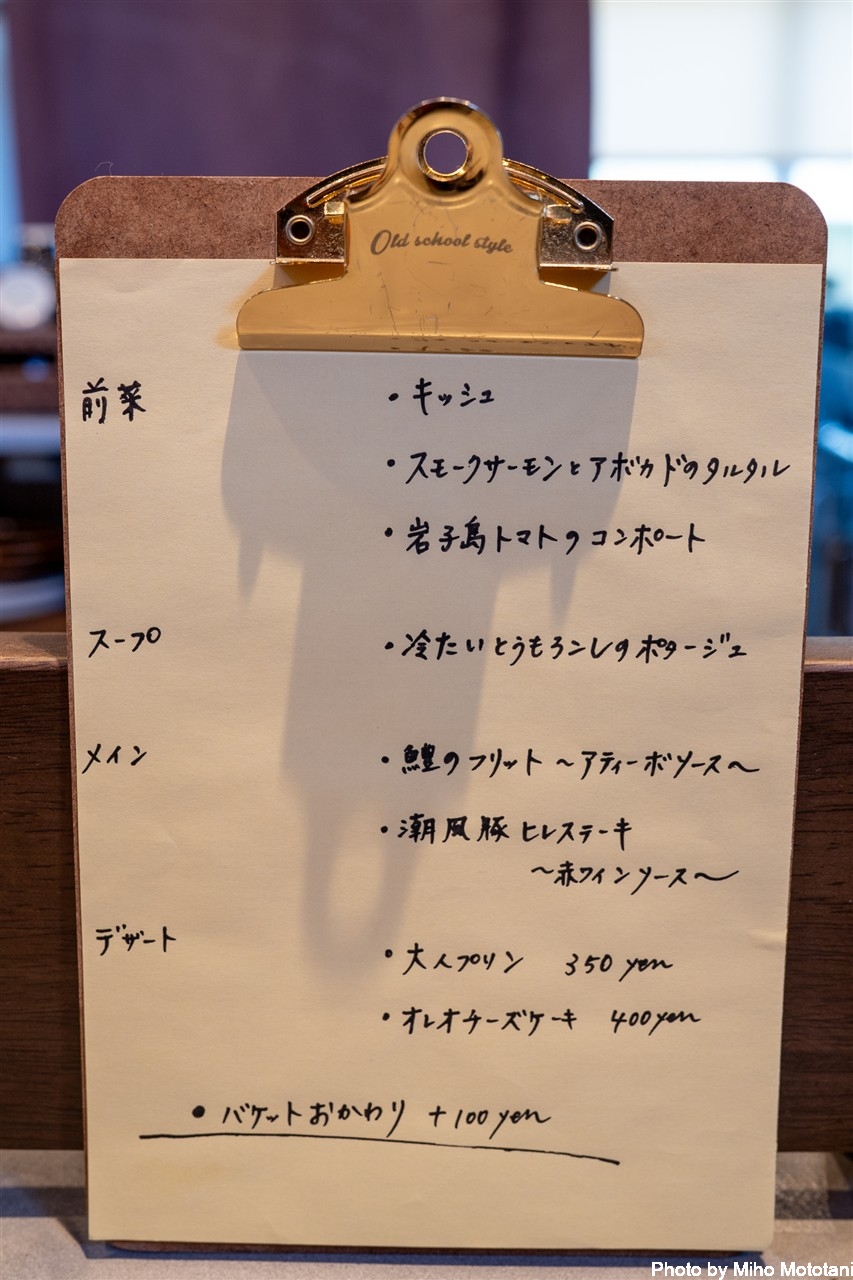 Old school style
前菜
・キッシュ
・スモークサーモンとアボカドのタルタル
・岩子島トマトのコンポート
スープ
・冷たいとうもろこしのポタージュ
メイン
・鱧のフリット ～アティーボソース～
・潮風豚ヒレステーキ
～赤ワインソース～
デザート
・大人プリン 350 yen
・オレオチーズケーキ 400 yen
・バケットおかわり +100 yen
Photo by Miho Mototani